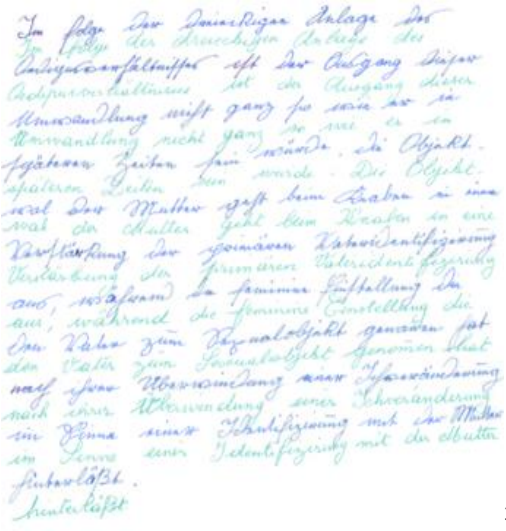 Im folge der dreieckigen Anlage des
Im folge der dreieckigen Anlage des
Oedipusverhältnisses ist der Ausgang dieser
Oedipusverhältnisses ist der Ausgang dieser
Umwandlung nicht ganz so wie er in
Umwandlung nicht ganz so wie er in
späteren Zeiten sein würde. die Objekt-
späteren Zeiten sein wurde. Die Objekt-
wal der Mutter geht beim Knaben in eine
wal der Mutter geht beim Knaben in eine
Verstärkung der primären Vateridentifizierung
Verstärkung der primären Vateridentifizierung
aus, während die feminine Einstellung die
aus, während die feminine Einstellung die
den Vater zum Sexualobjekt genomen hat
den Vater zum Sexualobjekt genomen hat
nach ihrer Überwindung einer Ichveränderung
nach ihrer Uberwindung einer Ichveränderung
im Sinne einer Identifizierung mit der Mutter
im Sinne einer Identifizierung mit der Mutter
hinterläßt.
hinterläßt